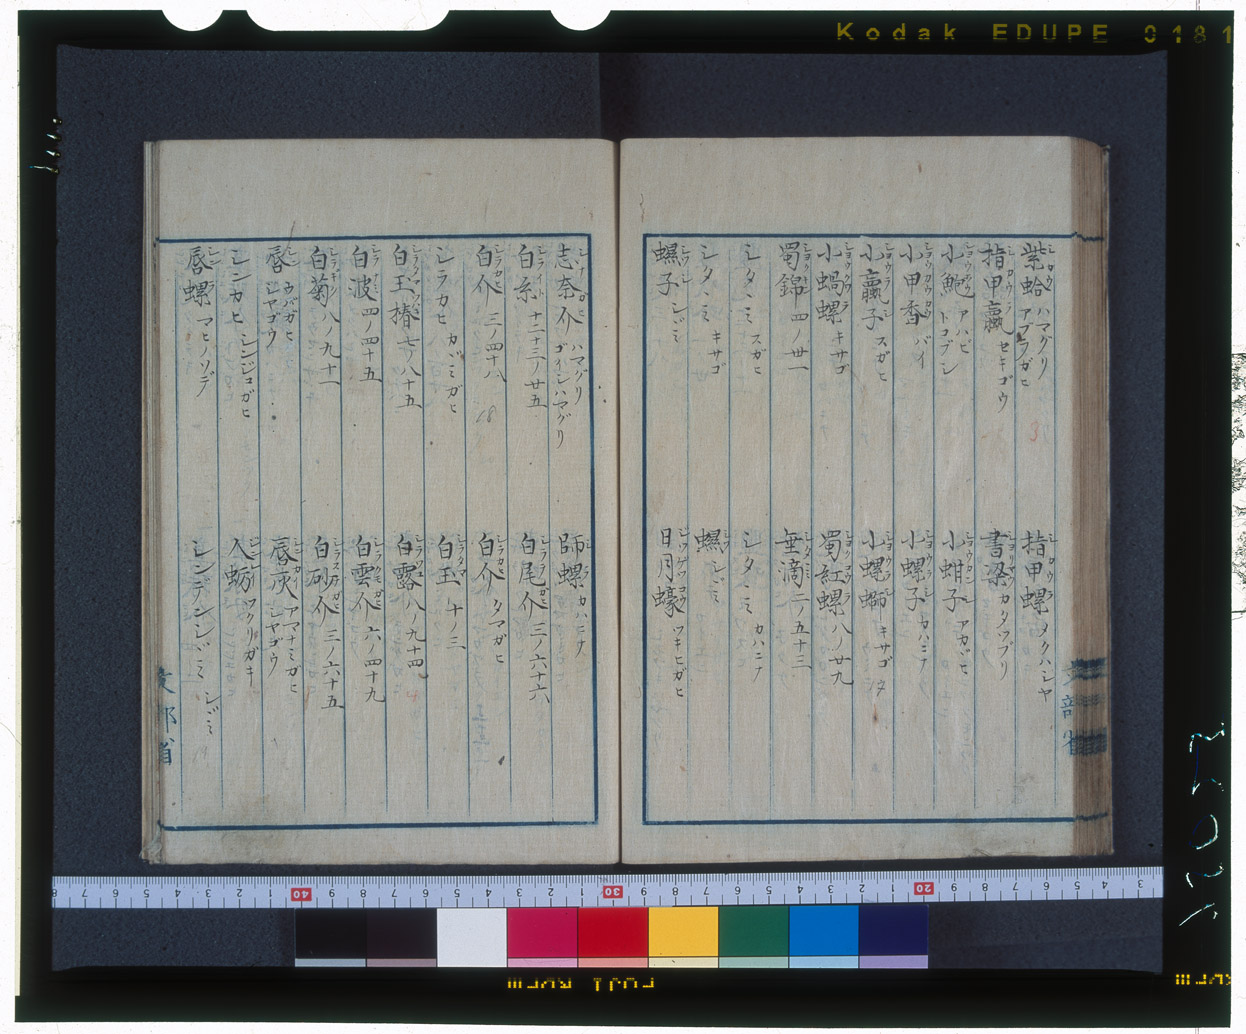 Kodak EDUPE 0181
紫蛤 ハマグリ アブラガヒ
指甲螺 メクハジヤ
指甲蠃 セキゴウ
書梁 カタツブリ
小鮑 アハビ トコブシ
小蚶子 アカガヒ
小甲香 バイ
小螺子 カハニナ
小蠃子 スガヒ
小螺螄 キサゴ
小蝸螺 キサゴ
蜀紅螺 八ノ廿九
蜀錦 四ノ廿一
垂滴 二ノ五十三
シタヽミ スガヒ
シタヽミ カハニナ
シタヽミ キサゴ
蜆 シヾミ
蜆子 シヾミ
日月蠔 ツキヒガヒ
文部省
志奈介 ハマグリ ゴイシハマグリ
師螺 カハニナ
白糸 十二十三ノ廿五
白尾介 三ノ六十六
白介 三ノ四十八
白介 タマガヒ
シラカヒ カヾミガヒ
白玉 十ノ三
白玉椿 七ノ八十五
白露 八ノ九十四
白波 四ノ四十五
白雲介 六ノ四十九
白菊 八ノ九十一
白砂介 三ノ六十五
唇 ウバガヒ シヤゴウ
唇灰 アマナミガヒ シヤゴウ
シンカヒ シンジユガヒ
入蛎 ツクリガキ
唇螺 マヒノソデ
シンデンシヾミ シヾミ
文部省